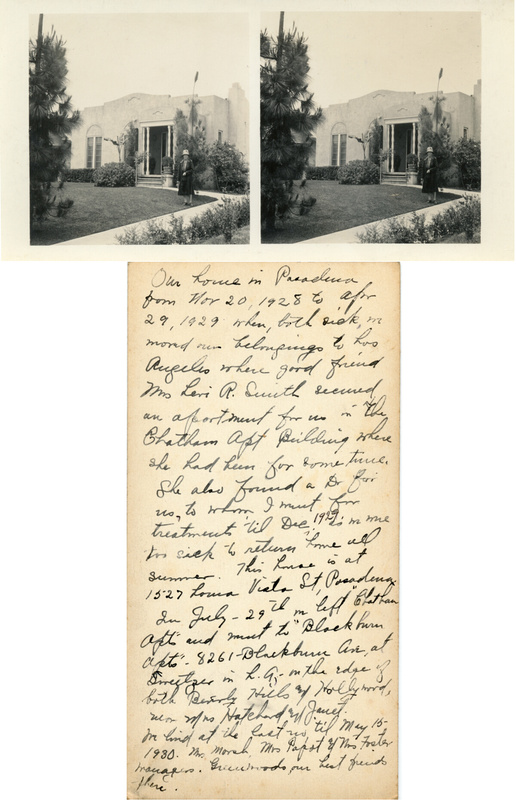 Our home in Pasadena
from Nov 20, 1928 to Apr
29, 1929 when, both sick, we
moved our belongings to Los
Angeles where good friend
Mrs Levi R. Smith secured
an apartment for us in The
Chatham Apt Building where
she had been for some time.
She also found a Dr for
us, to whom I went for
treatments 'til Dec. 1929 as we were
too sick to return home all
summer. This house is at
1527 Loma Vista St, Pasadena.
In July - 29th we left "Chatham
Apts" and went to "Blackburn
Apts" - 8261 - Blackburn Ave, at
Sweetzer in L.A. - on the edge of
both Beverly Hills & Hollywood,
near Mrs Hatchard & Janet.
We lived at the last no, 'til May 15-
1930. Mrs Marsh, Mrs Papst & Mrs Foster
managers. Greenwoods, our best friends
there.